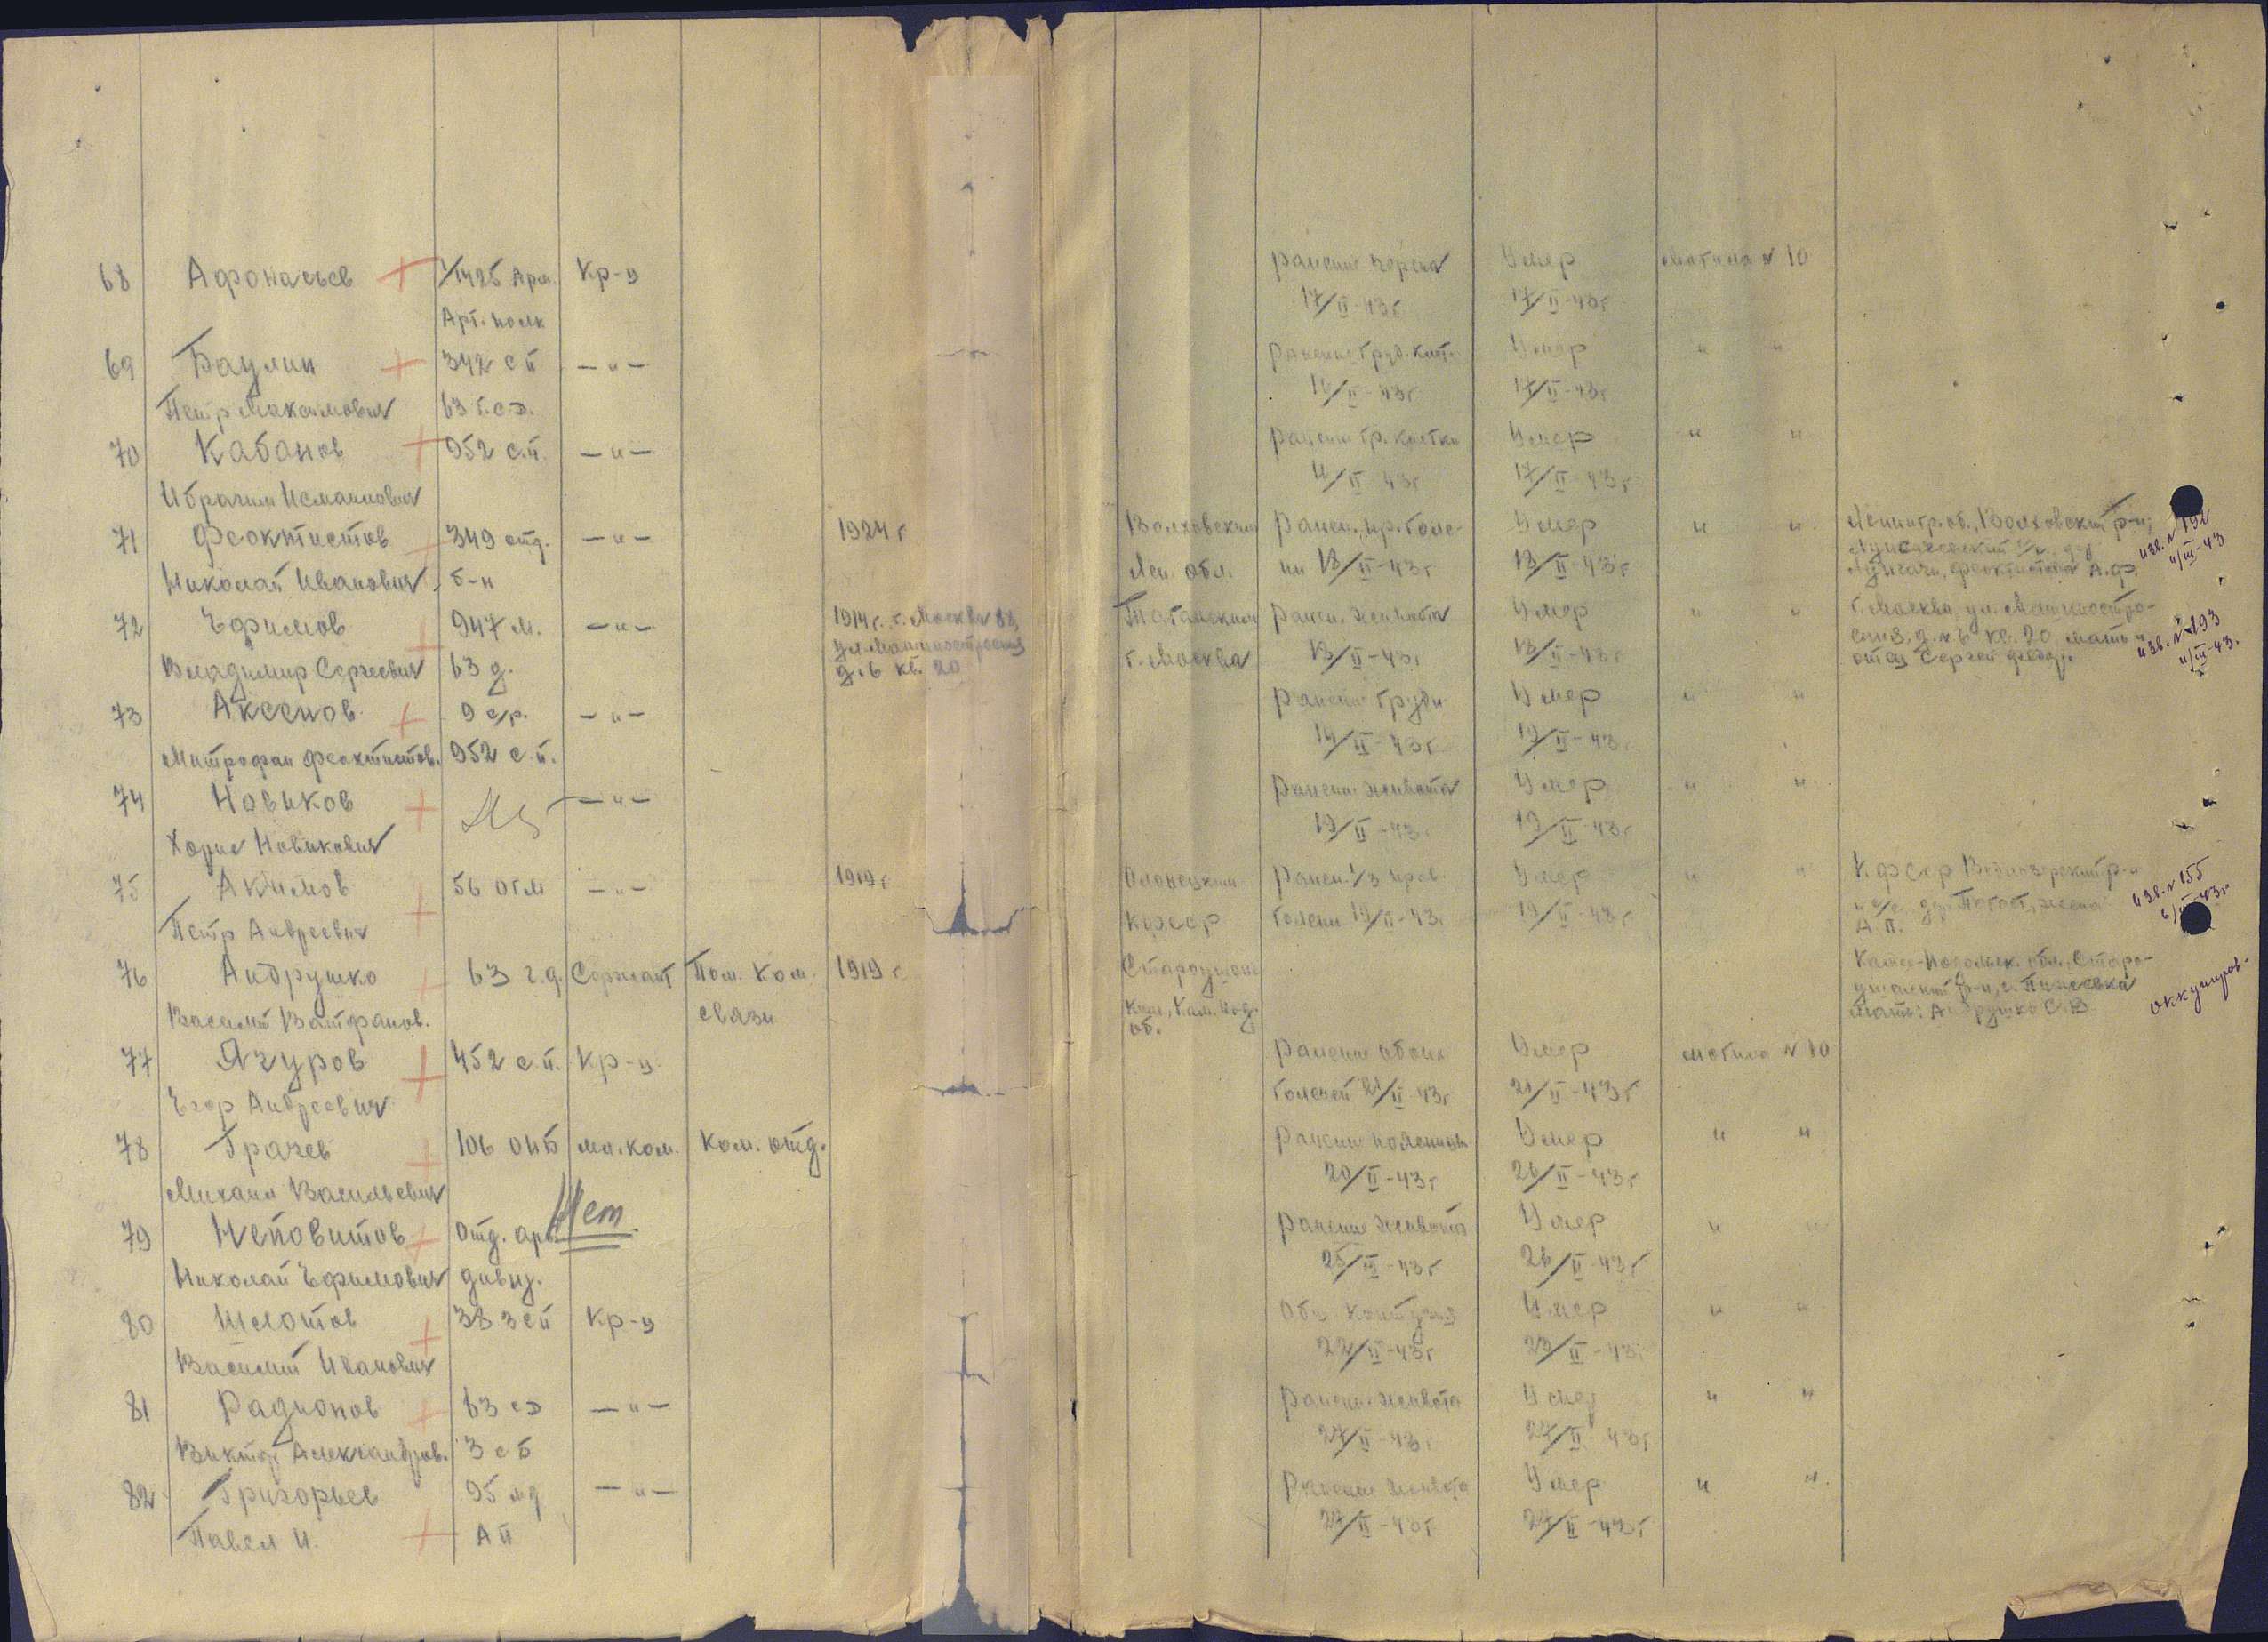 68 Афонасьев 1/1425 Арм. Кр-ц ранение черепа Умер могила № 10
Арт. полк 17/II-43г 17/II-43г
69 Баулин 342 сп —"— ранение груд. клет. Умер " "
Петр Максимович 63 г.сд. 16/II-43г 17/II-43г
70 Кабанов 952 с.п. —"— ранение гр. клетки Умер " "
Ибрагим Исмаилович 11/II-43г 17/II-43г
71 Феоктистов 349 отд. —"— 1924 г Волховский Ранен. пр. голе- Умер " " Ленингр. об., Волховский р-н, изв. № 192
Николай Иванович б-н Лен. обл. ни 13/II-43г 13/II-43г Феоктистова А.Ф. 11/III-43
72 Ефимов 947 м. —"— 1914 г. г. Москва 88, Таганский Ранен. живота Умер " " г. Москва, ул. Машиностро-
ул. Машиностроения ения 3, д. № 6 кв. 20 мать и изв. № 193
Владимир Сергеевич 63 д. д. 6 кв. 20 г. Москва 13/II-43г 13/II-43г отец Сергей 11/III-43.
73 Аксенов 9 с/р. —"— Ранение груди Умер " "
Митрофан Феоктистов. 952 с.п. 14/II-43г 19/II-43г
74 Новиков —"— Ранение живота Умер " "
Новикович 19/II-43г 19/II-43г
75 Акимов 56 —"— 1919 г Олонецкий Ранен. 1/3 прав. Умер " " К.Ф.ССР р-н изв. № 155
Петр Андреевич КФССР голени 19/II-43г 19/II-43г Погост, жена
А. П.
76 Андрушко 63 г.д. Сержант Пом. ком. 1919 г Камен-Подольск. обл. Старо-
ушецкий р-н, с. оккупиров.
Василий связи Кам. Под. Мать: Андрушко
об.
77 Ягуров 452 с.п. Кр-ц. Ранение обоих Умер могила № 10
Егор Андреевич голеней 21/II-43г 21/II-43г
78 Грачев 106 ОИБ мл. ком. Ком. отд. Ранение поясницы Умер " "
Михаил Васильевич 20/II-43г 26/II-43г
Нет
79 Неповитов Отд. арт. Ранение живота Умер " "
Николай Ефимович дивиз. 26/II-43г
80 Шлотов Кр-ц Общ. контузия Умер " "
Василий Иванович 22/II-43г 23/II-43г
81 Радионов 63 сд —"— Ранение живота Умер " "
Виктор Александров. 3 сб 27/II-43г 27/II-43г
82 Григорьев 95 —"— Ранение живота Умер " "
Павел И. АП 27/II-43г 27/II-43г